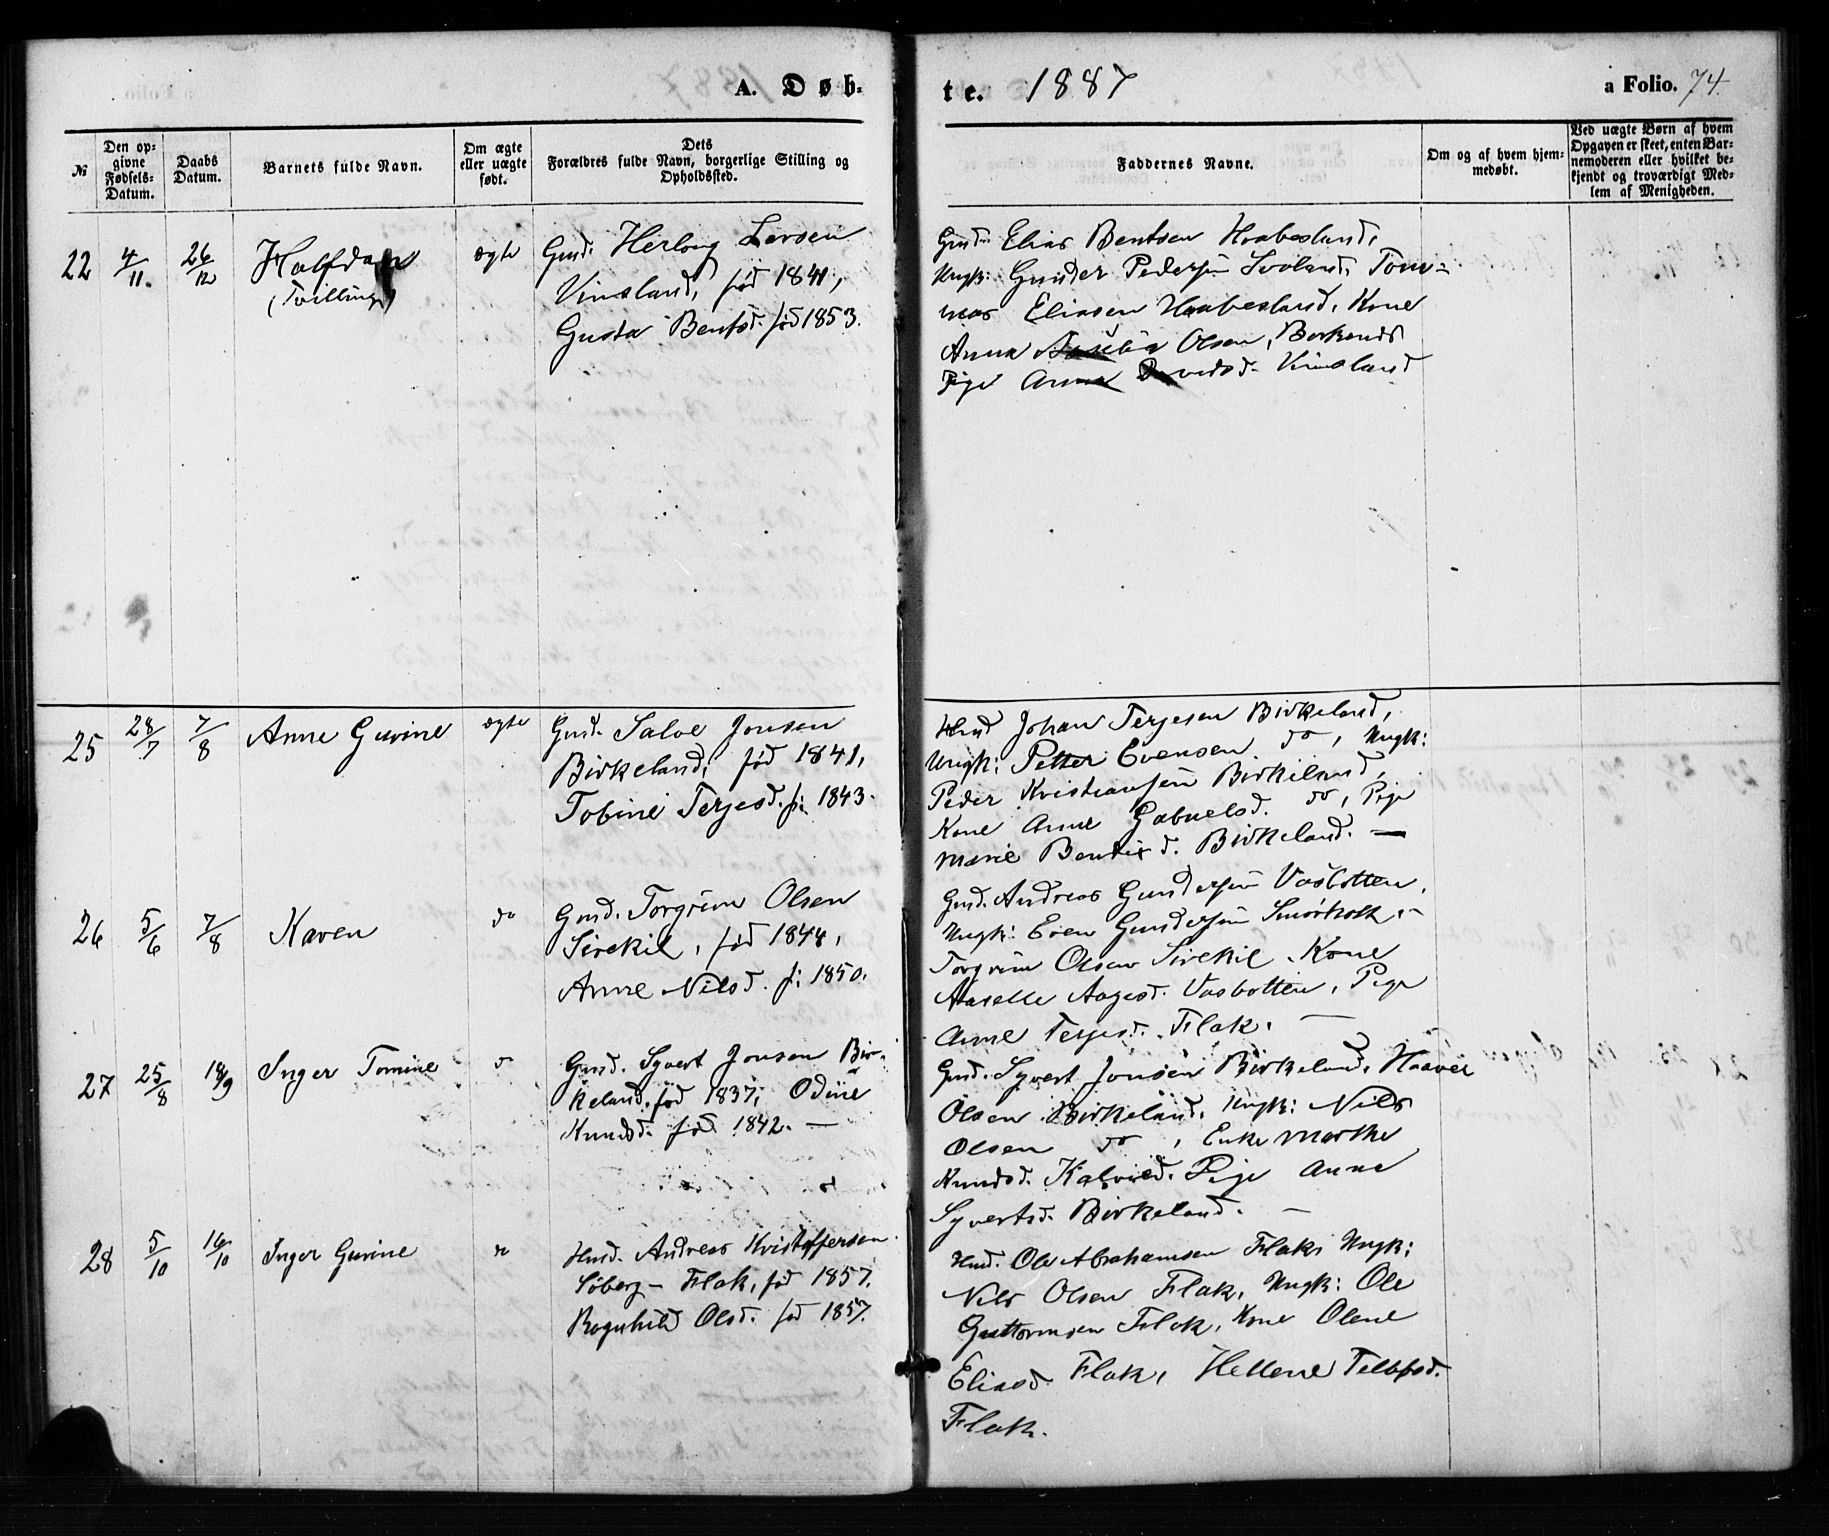 A. Døb-
te. 1887
a Folio. 74.
№
Den op-
givne
Fødsels-
Datum.
Daabs
Datum.
Barnets fulde Navn.
Om ægte
eller uægte
født.
Dets
Forældres fulde Navn, borgerlige Stilling og
Opholdssted.
Faddernes Navne.
Om og af hvem hjem-
medøbt.
Ved uægte Børn af hvem
Opgaven er skeet, enten Bar-
nemoderen eller hvilket be-
kjendt og troværdigt Med-
lem af Menigheden.
22 4/11. 26/12 Halfdan ægte
(Tvilling)
Gmd. Herlong Larsen
Vinsland, fød 1841,
Gusta Bentsd. fød 1853.
Gmd. Elias Bentsen Haabesland,
Ungk: Gunder Pedersen Svaland, Tom-
mas Eliasen Haabesland, Kone
Anna Olsen,
Pige Anne Davidsd. Vinsland
25 28/7 7/8 Anne Gurine ægte
Gmd. Salve Jonsen
Birkeland, fød 1841,
Tobine Terjesd. f: 1843.
Hmd Johan Terjesen Birkeland,
Ungk: Petter Evensen do, Ungk:
Peder Kristiansen Birkeland,
Kone Anne Gabrielsd. do, Pige
Marie Bentsd. Birkeland. —
26 5/6 7/8 Karen do
Gmd. Torgrim Olsen
Sirekil, fød 1844,
Anne Nilsd. f: 1850.
Gmd. Andreas Gundersen Vasbotten,
Ungk: Even Gundersen Smørholt,-
Torgrim Olsen Sirekil. Kone
Aaselle Aagesd. Vasbotten, Pige
Anne Terjesd. Flak. —
27 25/8 18/9 Inger Tomine do
Gmd. Syvert Jonsen Bir-
keland, fød 1837; Odine
Knudsd. fød 1842. —
Gmd. Syvert Jonsen Birkeland, Haaver
Olsen Birkeland, Ungk: Nils
Olsen do, Enke Marthe
Knudsd. Kalvild. Pige Anne
Syvertsd. Birkeland. —
28 5/10 16/10 Inger Gurine do
Hmd. Andreas Kristoffersen
Søberg- Flak, fød 1857.
Ragnhild Olsd. fød 1857.
Hmd. Ole Abrahamsen Flak, Ungk:
Nils Olsen Flak, Ungk: Ole
Guttormsen Flak, Kone Olene
Eliasd. Flak, Hellene Tellefsd.
Flak.